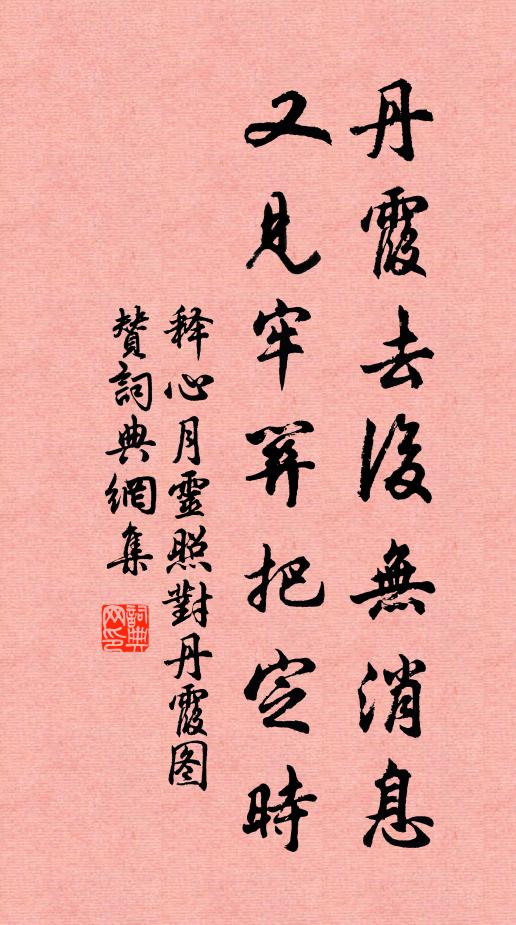 丹霞去後無消息
又見牢關把定時
释心月靈照對丹霞图
贊詞典網集
詞典
网印